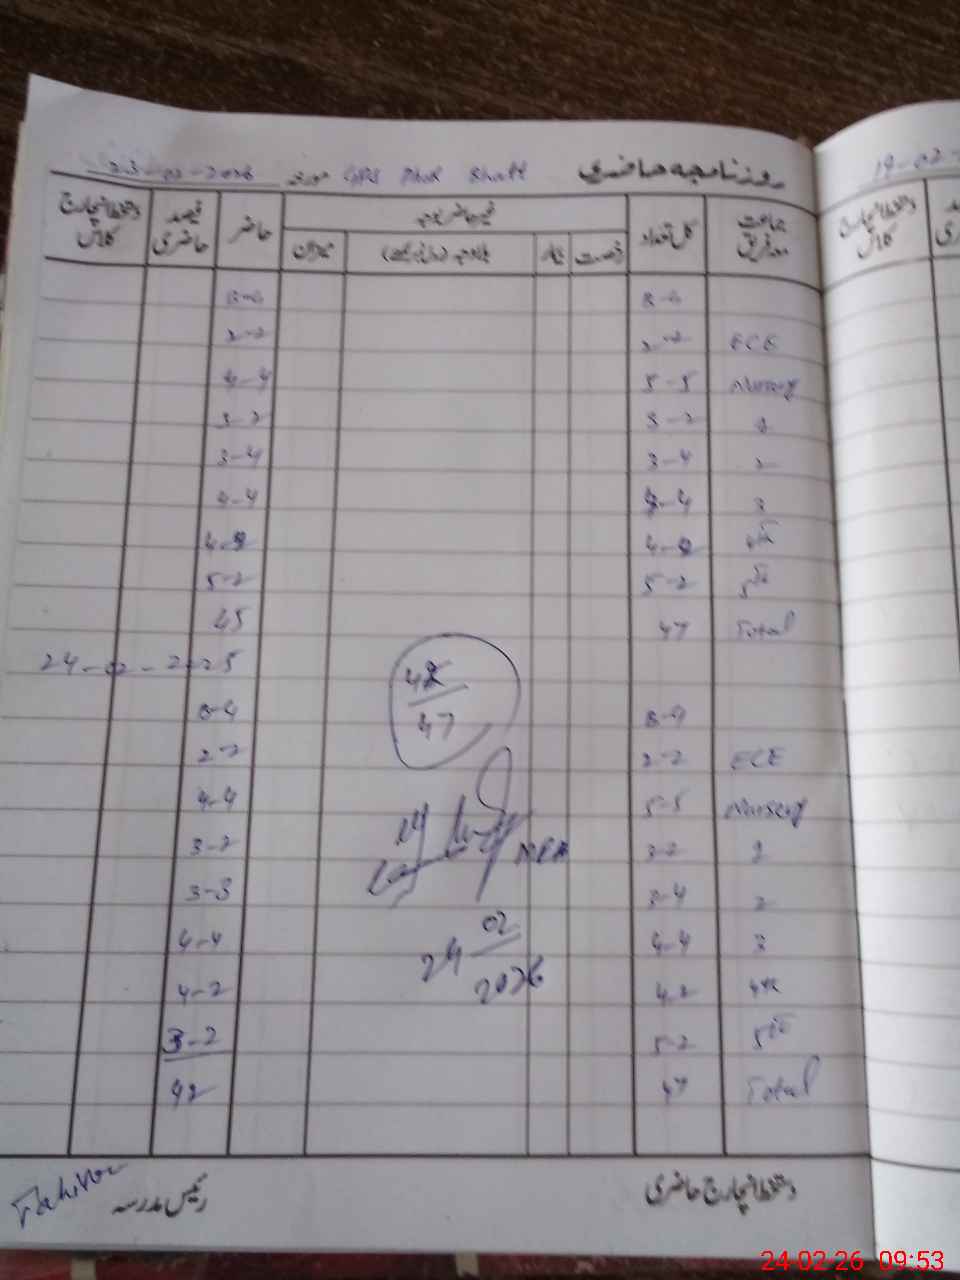 روزنامچہ حاضری مورخہ GPS Dhok Bhatt 23-02-2026
جماعت معہ فریق کل تعداد غیر حاضر بوجہ حاضر فیصد حاضری دستخط انچارج کلاس
رخصت بیمار بلاوجہ میزان
8-4 8-4
ECE 2-2 2-2
Nursery 5-5 4-4
1 3-2 3-2
2 3-4 3-4
3 4-4 4-4
4th 4-2 4-2
5th 5-2 5-2
Total 47 45
24-02-2025
42/47
8-4 8-4
ECE 2-2 2-2
Nursery 5-5 4-4
1 3-2 3-2
2 3-4 3-3
3 4-4 4-4
4th 4-2 4-2
5th 5-2 3-2
Total 47 42
MEA
24 02/2026
دستخط انچارج حاضری
رئیس مدرسہ
19-02-
دستخط انچارج کلاس
24-02-26 09:53